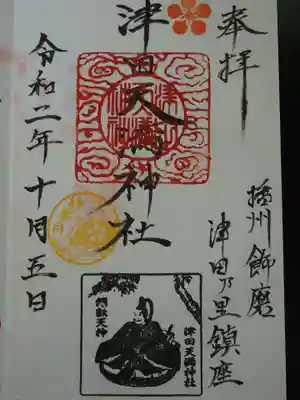 奉拝
播州飾磨
津田乃里鎮座
津田天満神社
令和二年十月五日
津田天満神社